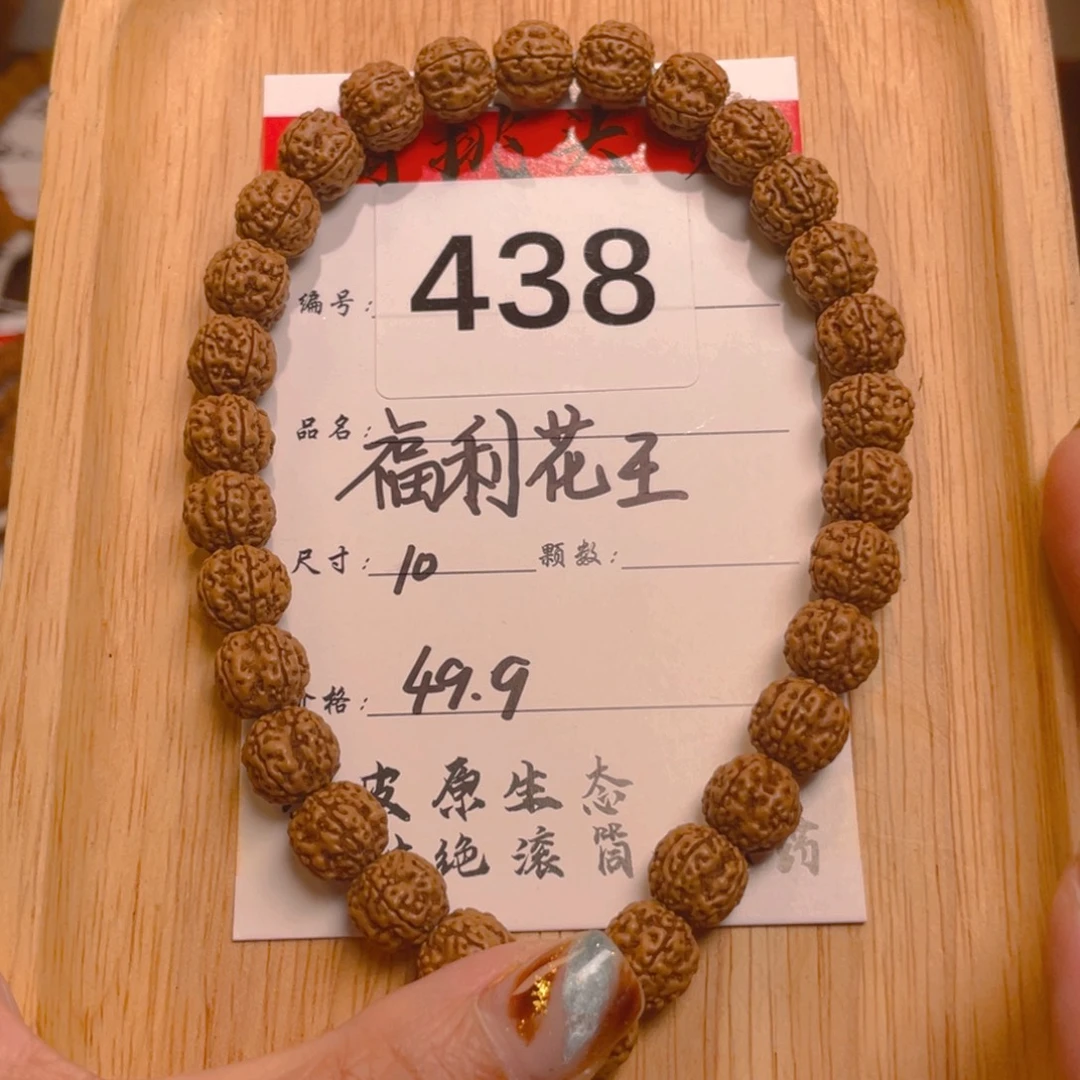 挑头
438
编号:
品名: 福利花王
尺寸: 10 颗数:
格: 49.9
皮原生态
绝滚筒